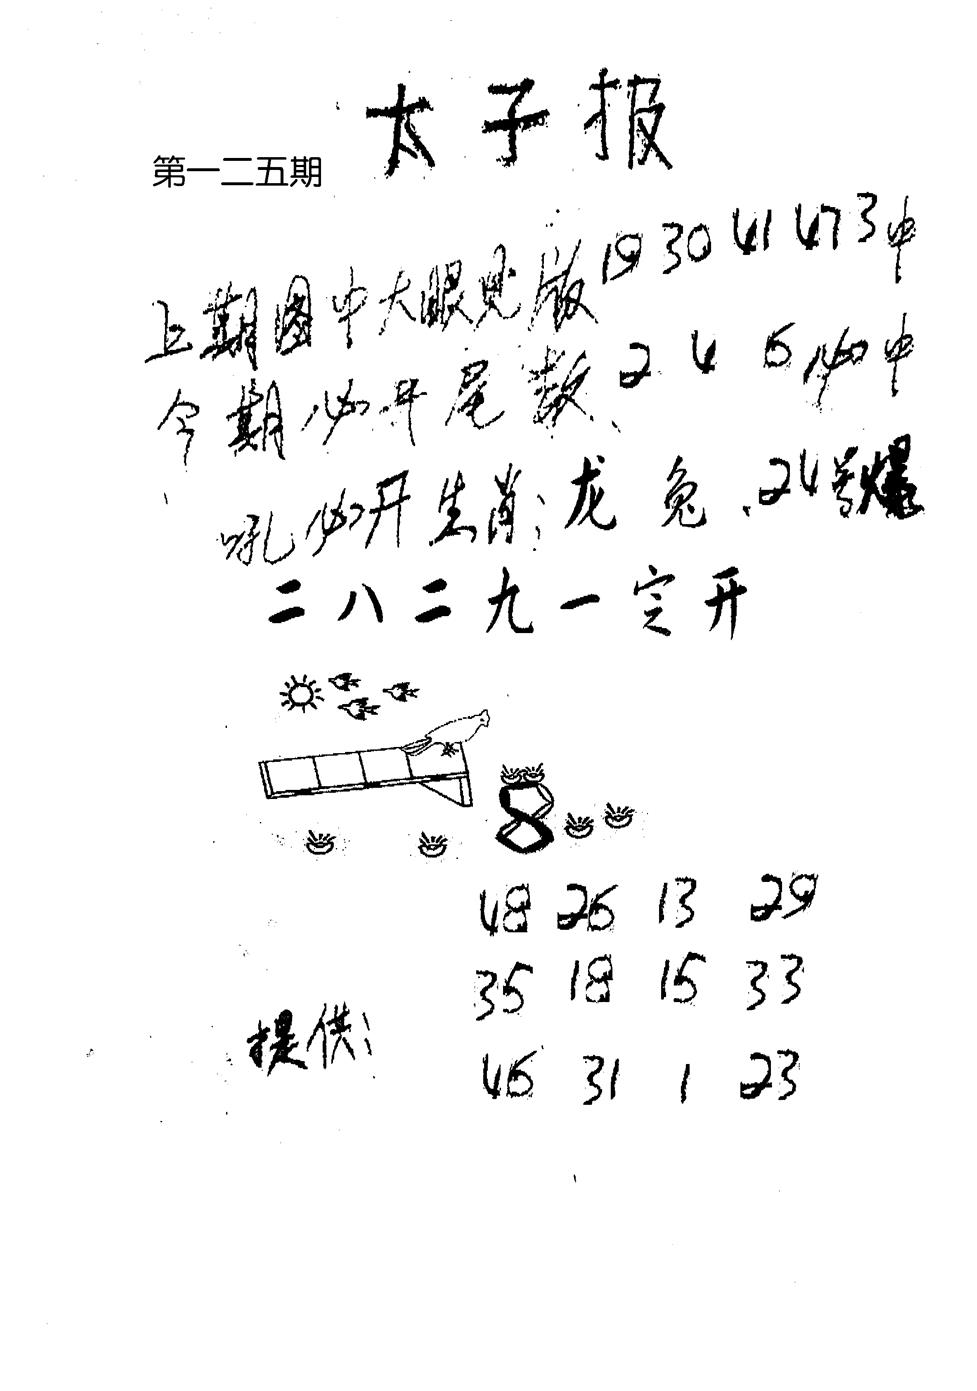 太子报
第一二五期
上期图中大眼见版 19 30 41 47 3中
今期必开尾数 2 4 6必中
吼必开生肖：龙 兔、24号爆
二八二九一定开
8
48 26 13 29
35 18 15 33
提供：
46 31 1 23